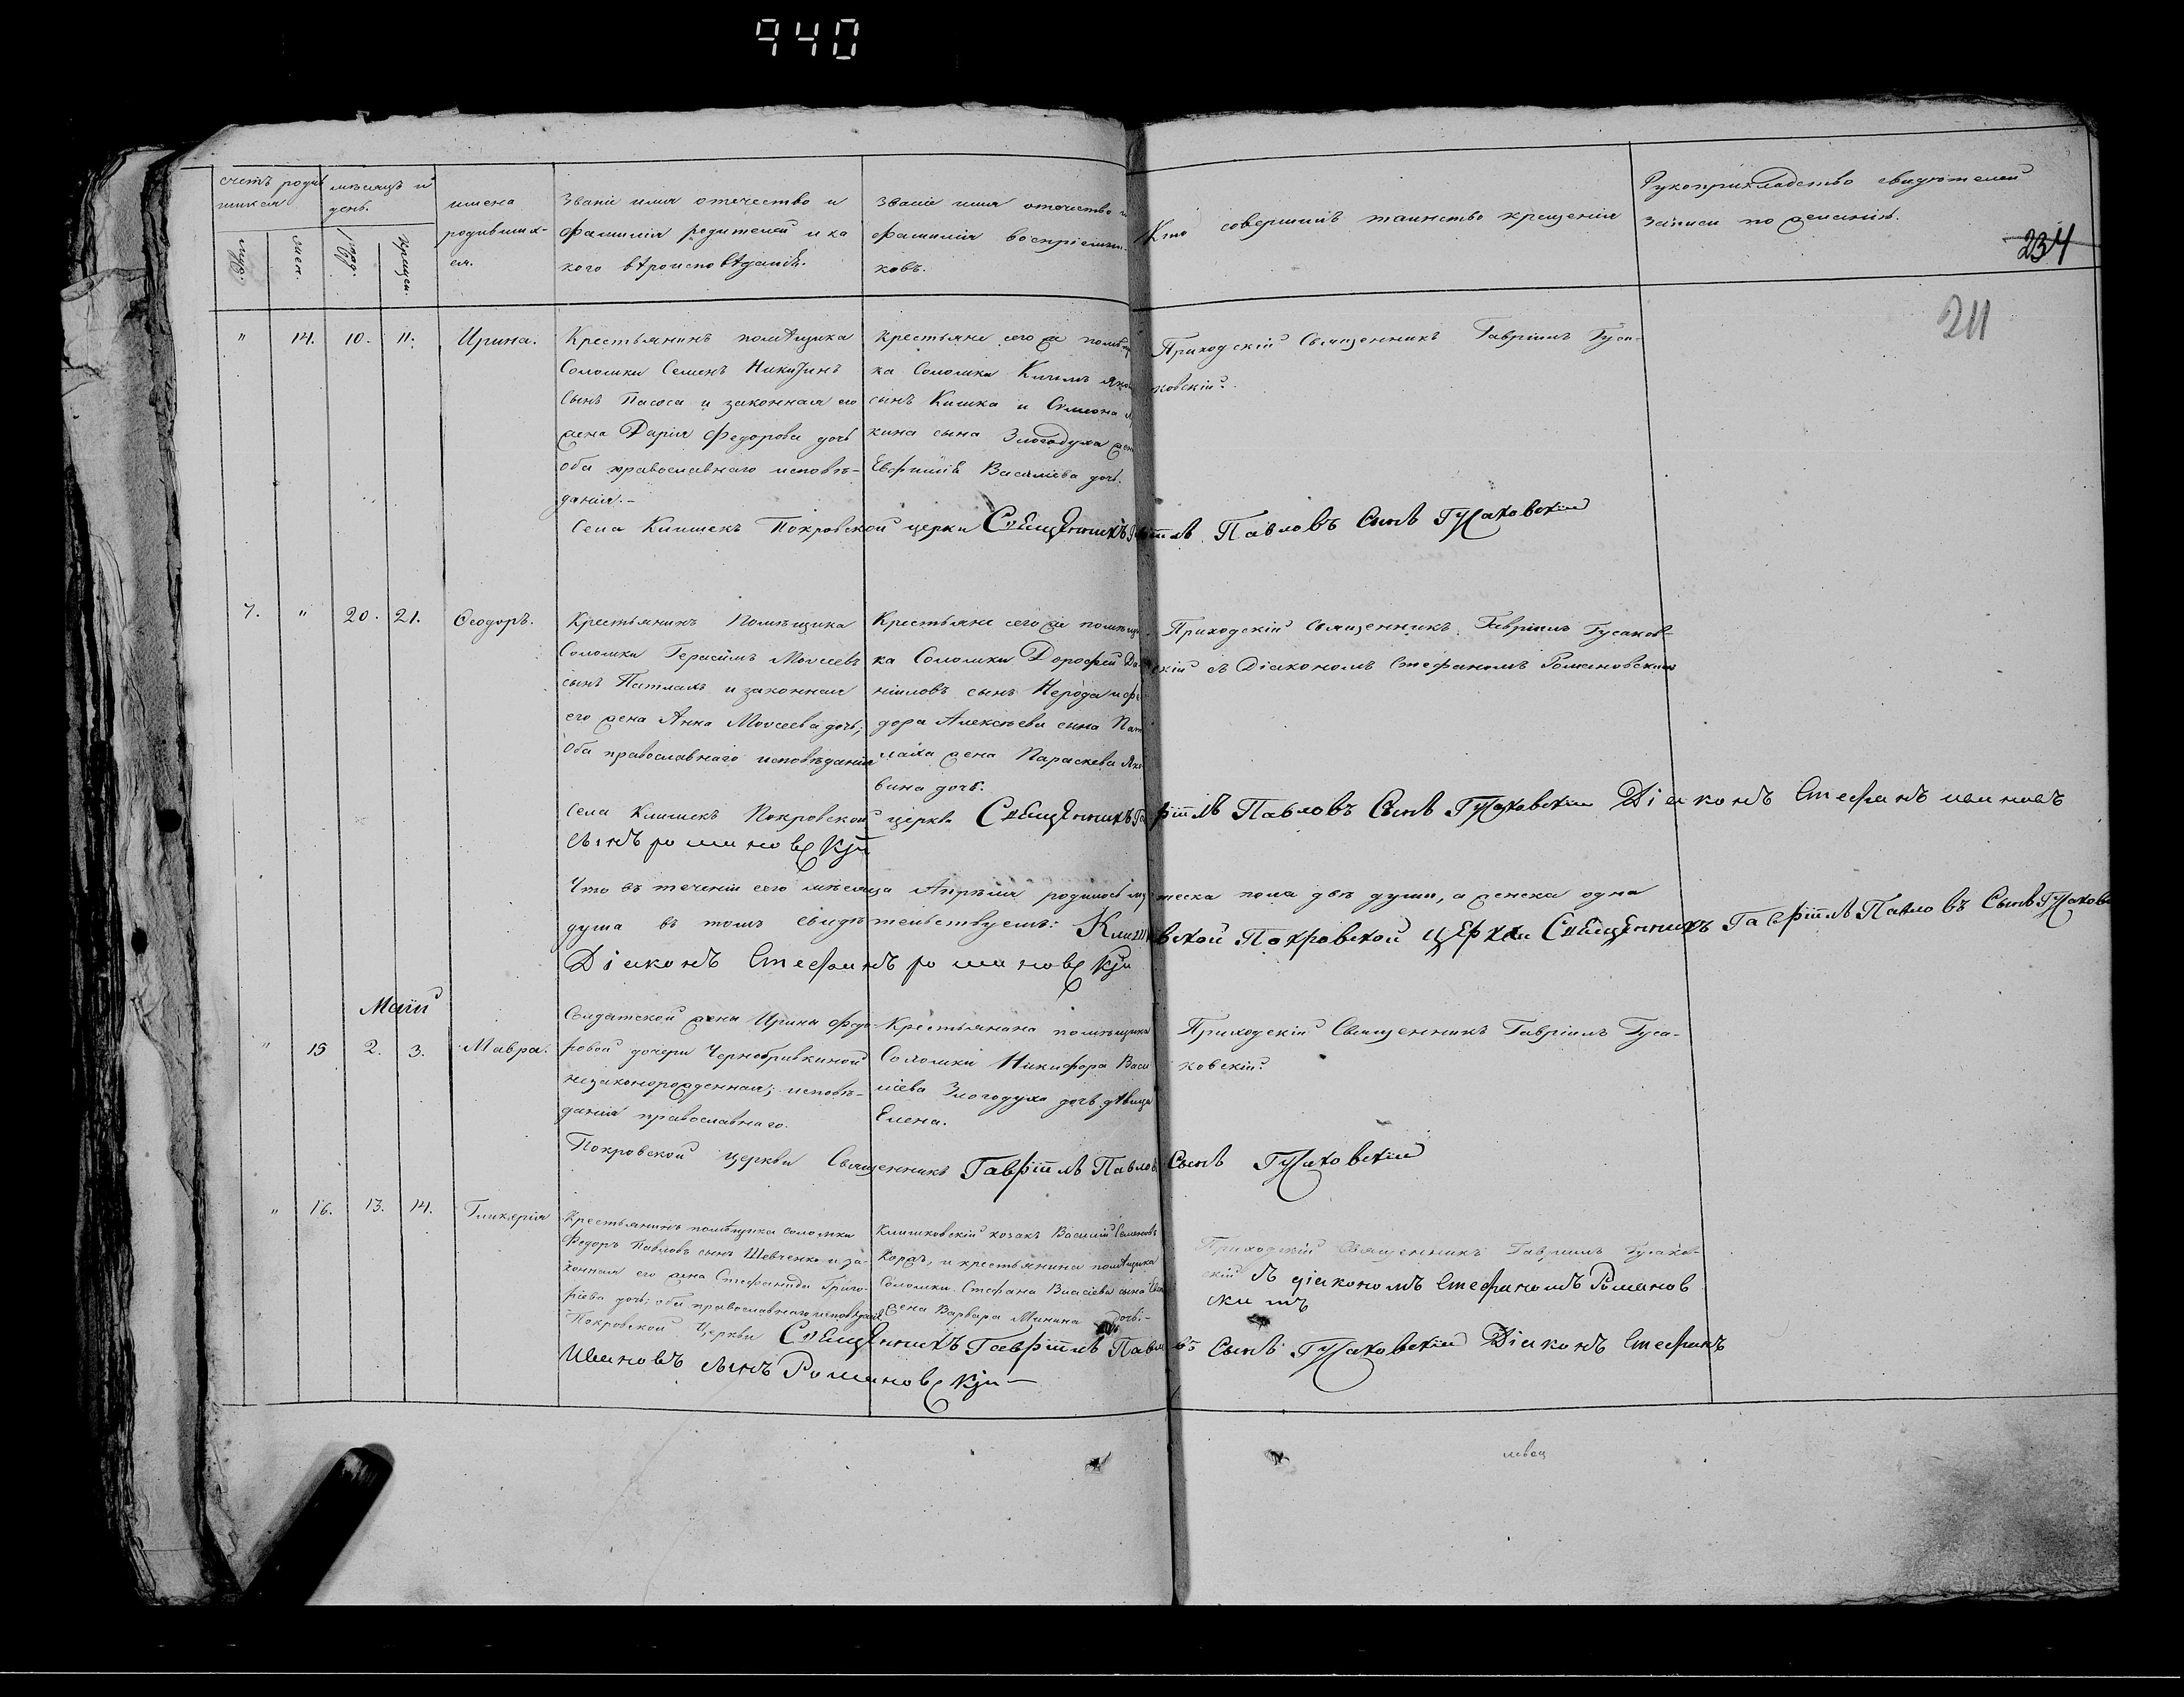 940
счетъ родив мѣсяцъ и
шихся день.
имена
родивших-
ся.
Званіе имя отечество и
фамилія родителей и ка
кого вѣроисповѣданія.
Званіе имя отечество и
фамилія воспріемни-
ковъ.
Кто совершилъ таинство крещенія
Рукоприкладство свидѣтелей
записи по желанію.
муж. жен. рожд. крещен.
234
211
" 14. 10. 11. Ирина.
Крестьянинъ помѣщика
Соломки Семенъ Никитинъ
сынъ Пасоса и законная его
жена Дарія Федорова дочь
оба православнаго исповѣ-
данія.-
крестьяне сего же помѣщи
ка Соломки Климъ Яков
сынъ Кишка и Симеона
кина сына Злогодуха жен
Евфимія Василіева дочь.
Приходскій Священникъ Гавріилъ Гуса-
ковскій.
Села Клишекъ Покровской церкви Священникъ Гавріилъ Павловъ Сынъ Гусаковскій
7. " 20. 21. Ѳеодоръ.
Крестьянинъ Помѣщика
Соломки Герасимъ Моисеевъ
сынъ Патлахъ и законная
его жена Анна Моисеева дочь;
Оба православнаго исповѣданія
Крестьяне сего же помѣщи
ка Соломки Дорофей Да
ніиловъ сынъ Нерода и Фе
дора Алексѣева сына Пат
лаха жена Параскева Яко
вина дочь.
Приходскій Священникъ Гавріилъ Гусаков-
скій съ Діакономъ Стефаномъ Романовскимъ
Села Клишекъ Покровской церкви Священникъ Гавріилъ Павловъ Сынъ Гусаковскій Діаконъ Стефанъ ивановъ
сынъ романовскій
Что въ теченіи сего мѣсяца Апрѣля родилось мужеска пола двѣ души, а женска одна
душа въ томъ свидѣтельствуемъ: Клишковской Покровской церкви Священникъ Гавріилъ Павловъ Сынъ Гусаковс
Діаконъ Стефанъ романовскій
Маій
" 15 2. 3. Мавра.
Солдатской жены Ирина Федо-
ровой дочери Чернобривкиной
незаконорожденная; исповѣ-
данія православнаго.
Крестьянина помѣщика
Соломки Никифора Васи
ліева Злогодуха дочь дѣвица
Елена.
Приходскій Священникъ Гавріилъ Гуса-
ковскій.
Покровской церкви Священникъ Гавріилъ Павловъ Сынъ Гусаковскій
" 16. 13. 14. Гликерія
Крестьянинъ помѣщика соломки
Федоръ Павловъ сынъ Шевченко и за-
конная его жена Стефанида Григо-
ріева дочь; оба православнаго исповѣданія
Клишковскій козакъ Василій Семеновъ
Коржъ, и крестьянина помѣщика
Соломки Стефана Власіева сына
жена Варвара Минина дочь.-
Приходскій Священникъ Гавріилъ Гусаков-
скій съ діакономъ Стефаномъ Романов
ски мъ
Покровской Церкви Священникъ Гавріилъ Павловъ Сынъ Гусаковскій Діаконъ Стефанъ
Ивановъ сынъ Романовскій